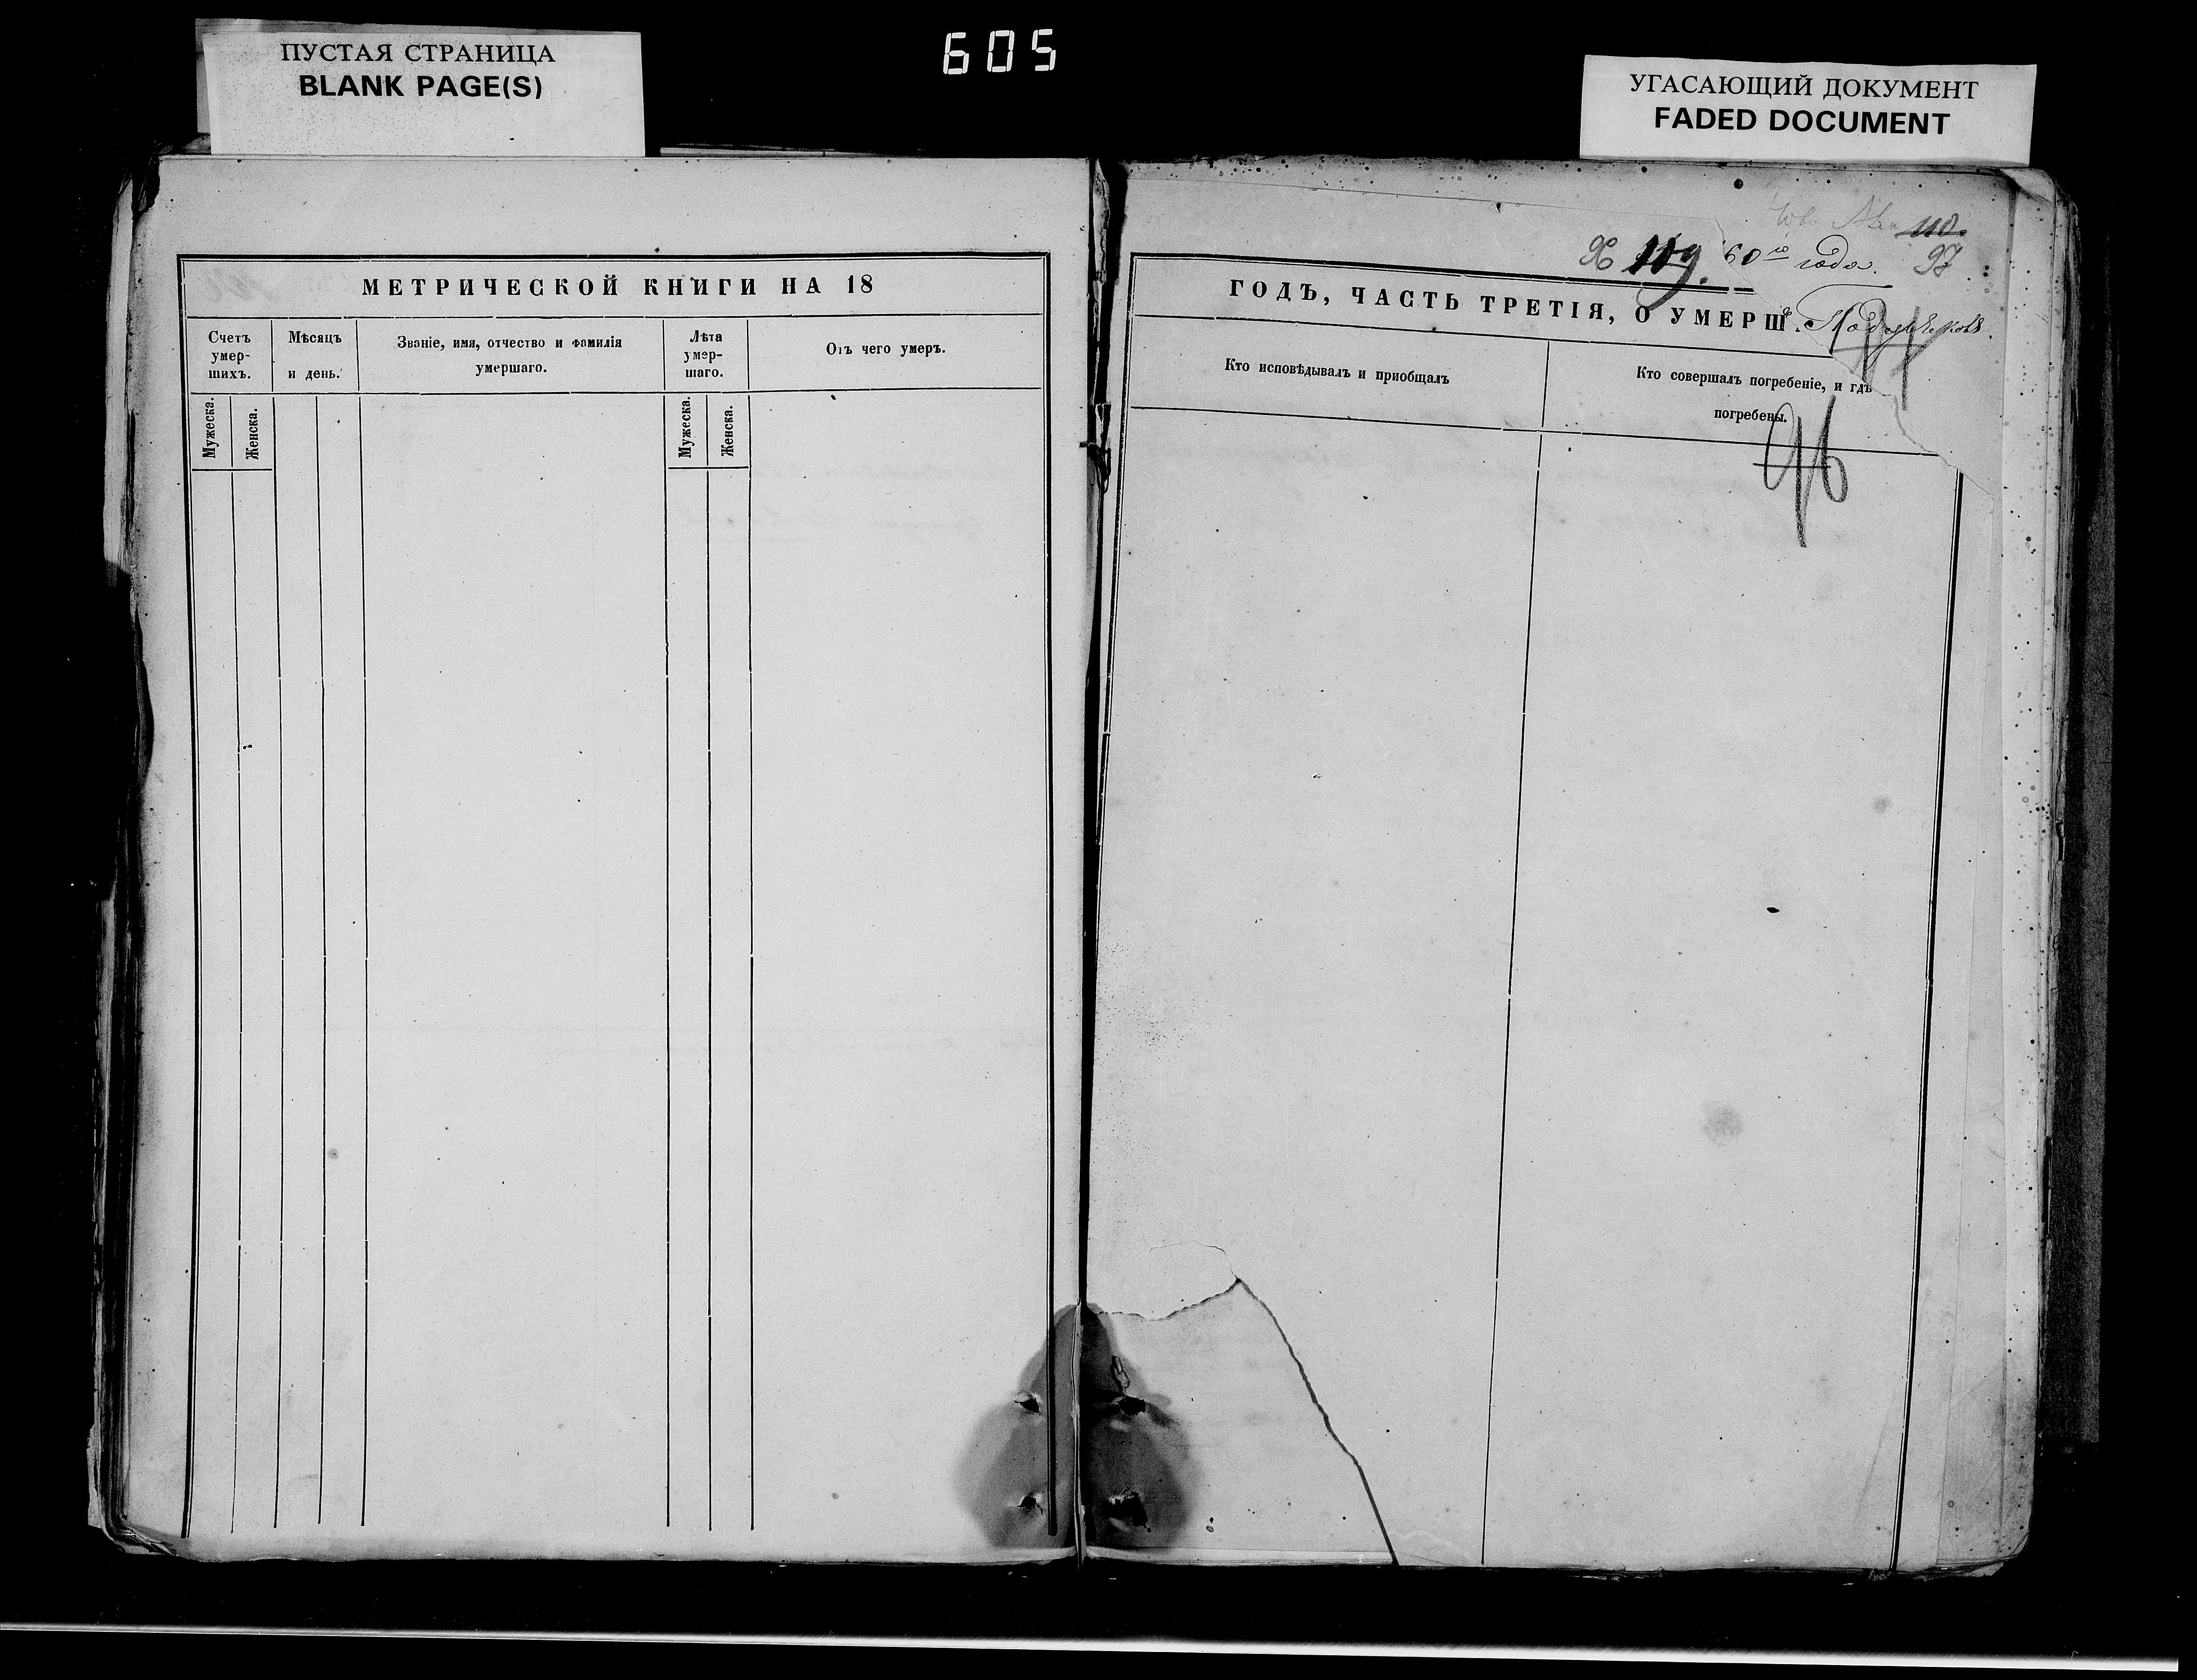 ПУСТАЯ СТРАНИЦА
BLANK PAGE(S)
605
УГАСАЮЩИЙ ДОКУМЕНТ
FADED DOCUMENT
МЕТРИЧЕСКОЙ КНИГИ НА 18
Счетъ умер- шихъ.
Мѣсяцъ и день.
Званіе, имя, отчество и фамилія умершаго.
Лѣта умер- шаго.
Отъ чего умеръ.
Мужеска.
Женска.
Мужеска.
Женска.
110.
109. 60го года. 97
ГОДЪ, ЧАСТЬ ТРЕТІЯ, О УМЕРШ
Кто исповѣдывалъ и пріобщалъ
Кто совершалъ погребеніе, и гдѣ
погребены.
96